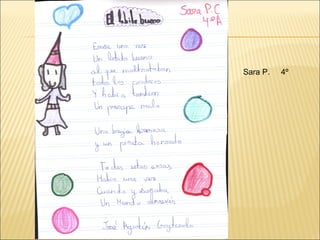 Sara P C
4ºA
El lobito bueno
Erase una vez
Un lobito bueno
al que maltrataban
todos los corderos
Y había tambien
Un principe malo
Una bruja hermosa
y un pirata honrado
Todas estas cosas
Había una vez
Cuando yo soñaba
Un Mundo al revés
José Agustín Goytisolo
Sara P. 4º